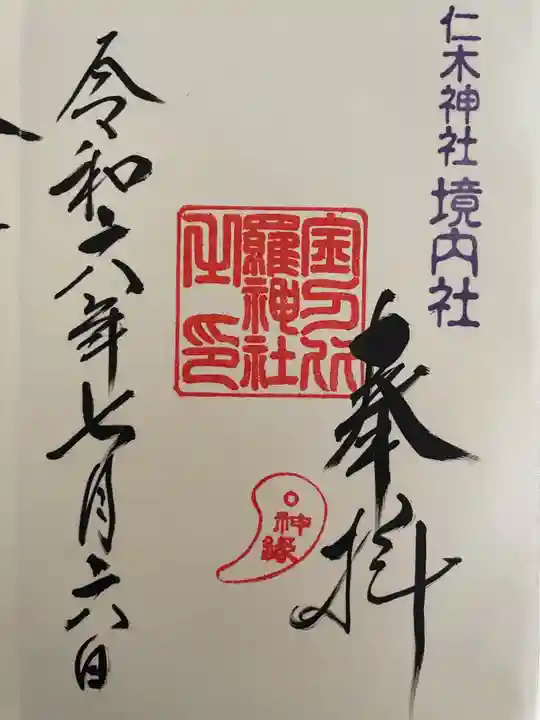 仁木神社 境内社
奉拝
宝刀比
羅神社
之印
神縁
令和六年七月六日